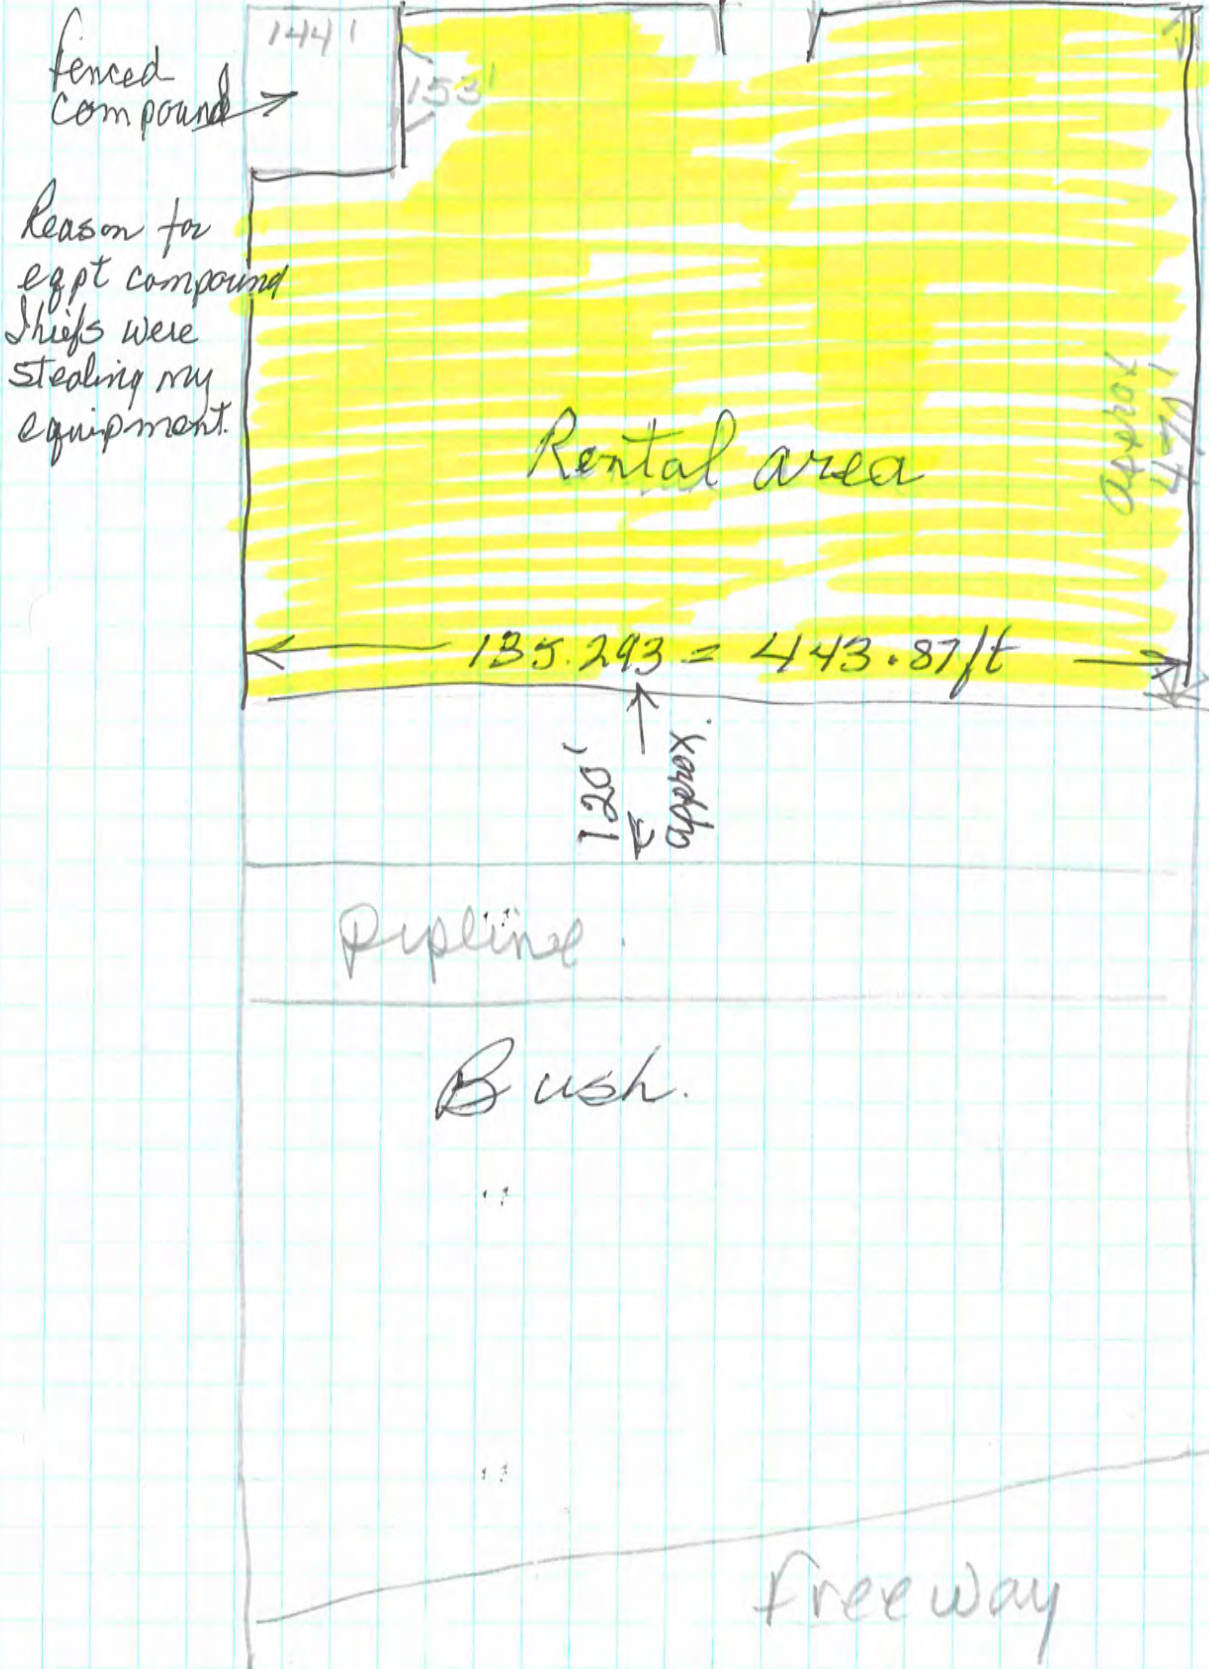 144'
fenced
compound
153'
Reason for
eqpt compound
Thiefs were
stealing my
equipment.
Rental area
approx
470'
135.293 = 443.87ft
120'
approx.
Pipline.
Bush.
freeway